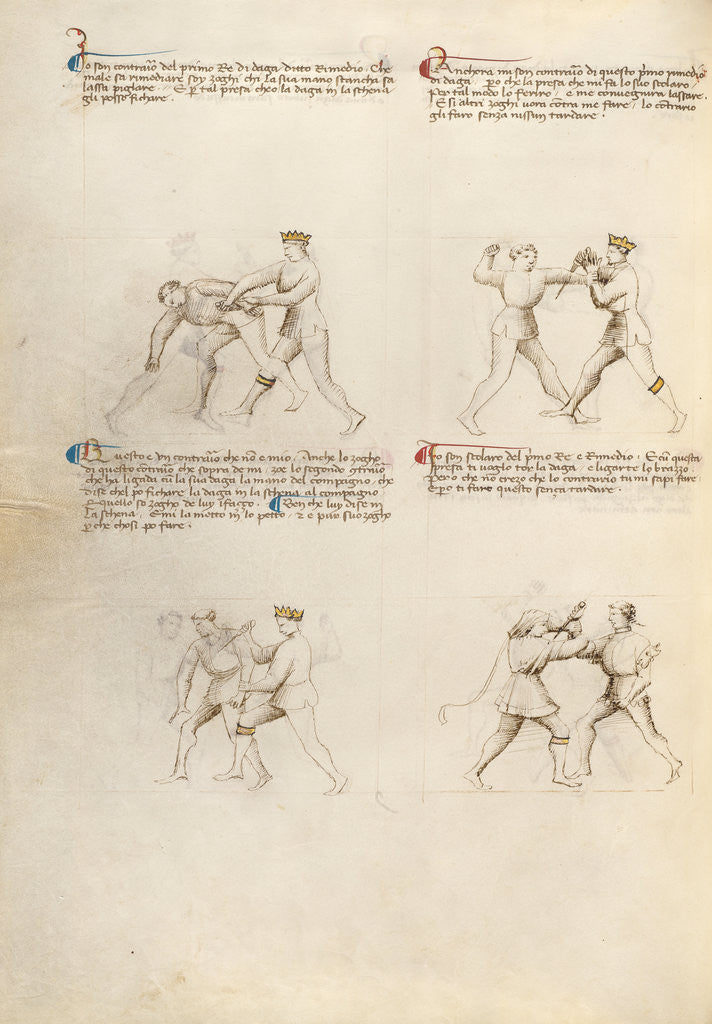 Io son contrario del primo Re di daga ditto Rimedio. Che
male sa rimediare soy zoghi chi la sua mano stancha sa
lassa pigliare. E per tal presa cheo la daga in la schena
gli posso fichare.
Anchora mi son contrario di questo primo rimedio
di daga. pero che la presa che mi fa lo suo scolaro
per tal modo lo feriro, e me convegnira lassare.
E si altri zoghi vora contra me fare, lo contrario
gli faro senza nissun tardare.
Questo e un contrario che non e mio. Anche lo zogho
di questo contrario che sopra de mi, zoe lo segondo contrario
che ha ligada cum la sua daga la mano del compagno, che
dise chel po fichare la daga in la schena al compagno
Quello so zogho de luy i' fazzo. Ben che luy dise in
La schena, E mi la metto in lo petto, e pur suo zogho
per che chosi po fare.
Io son scolaro del primo Re e Rimedio. E cum questa
presa ti voglo tor la daga, e ligarte lo brazzo.
pero che non crezo che lo contrario tu mi sapi fare.
E pero ti faro questo senza tardare.